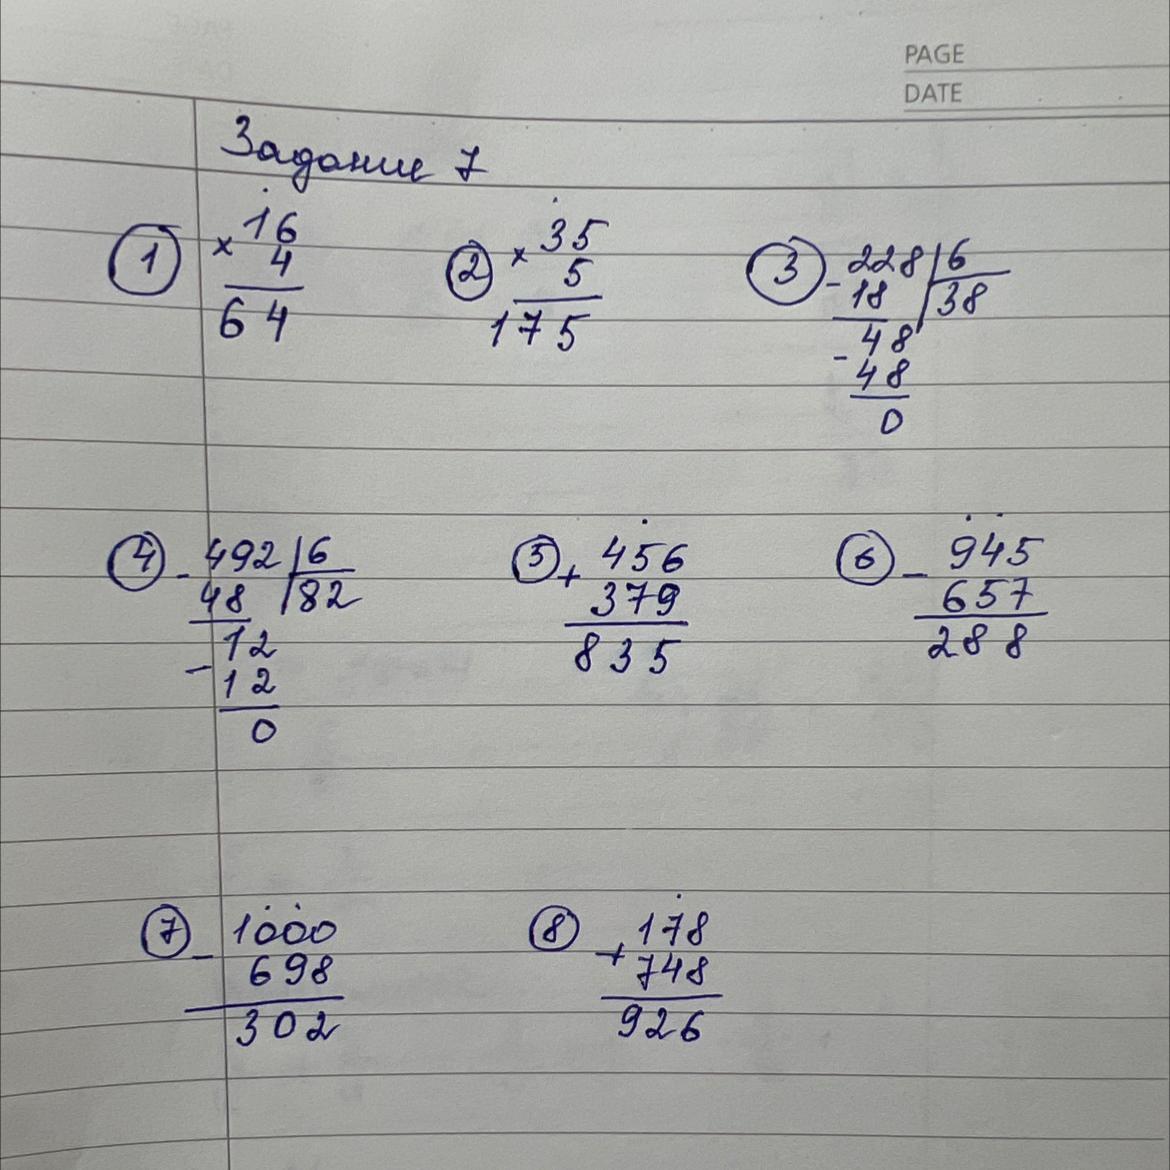 PAGE
DATE
Задание 7
① × 16
4
64
② × 35
5
175
③ - 228 | 6
18 | 38
- 48
48
0
④ - 492 | 6
48 | 82
- 12
12
0
⑤ + 456
379
835
⑥ - 945
657
288
⑦ - 1000
698
302
⑧ + 178
748
926